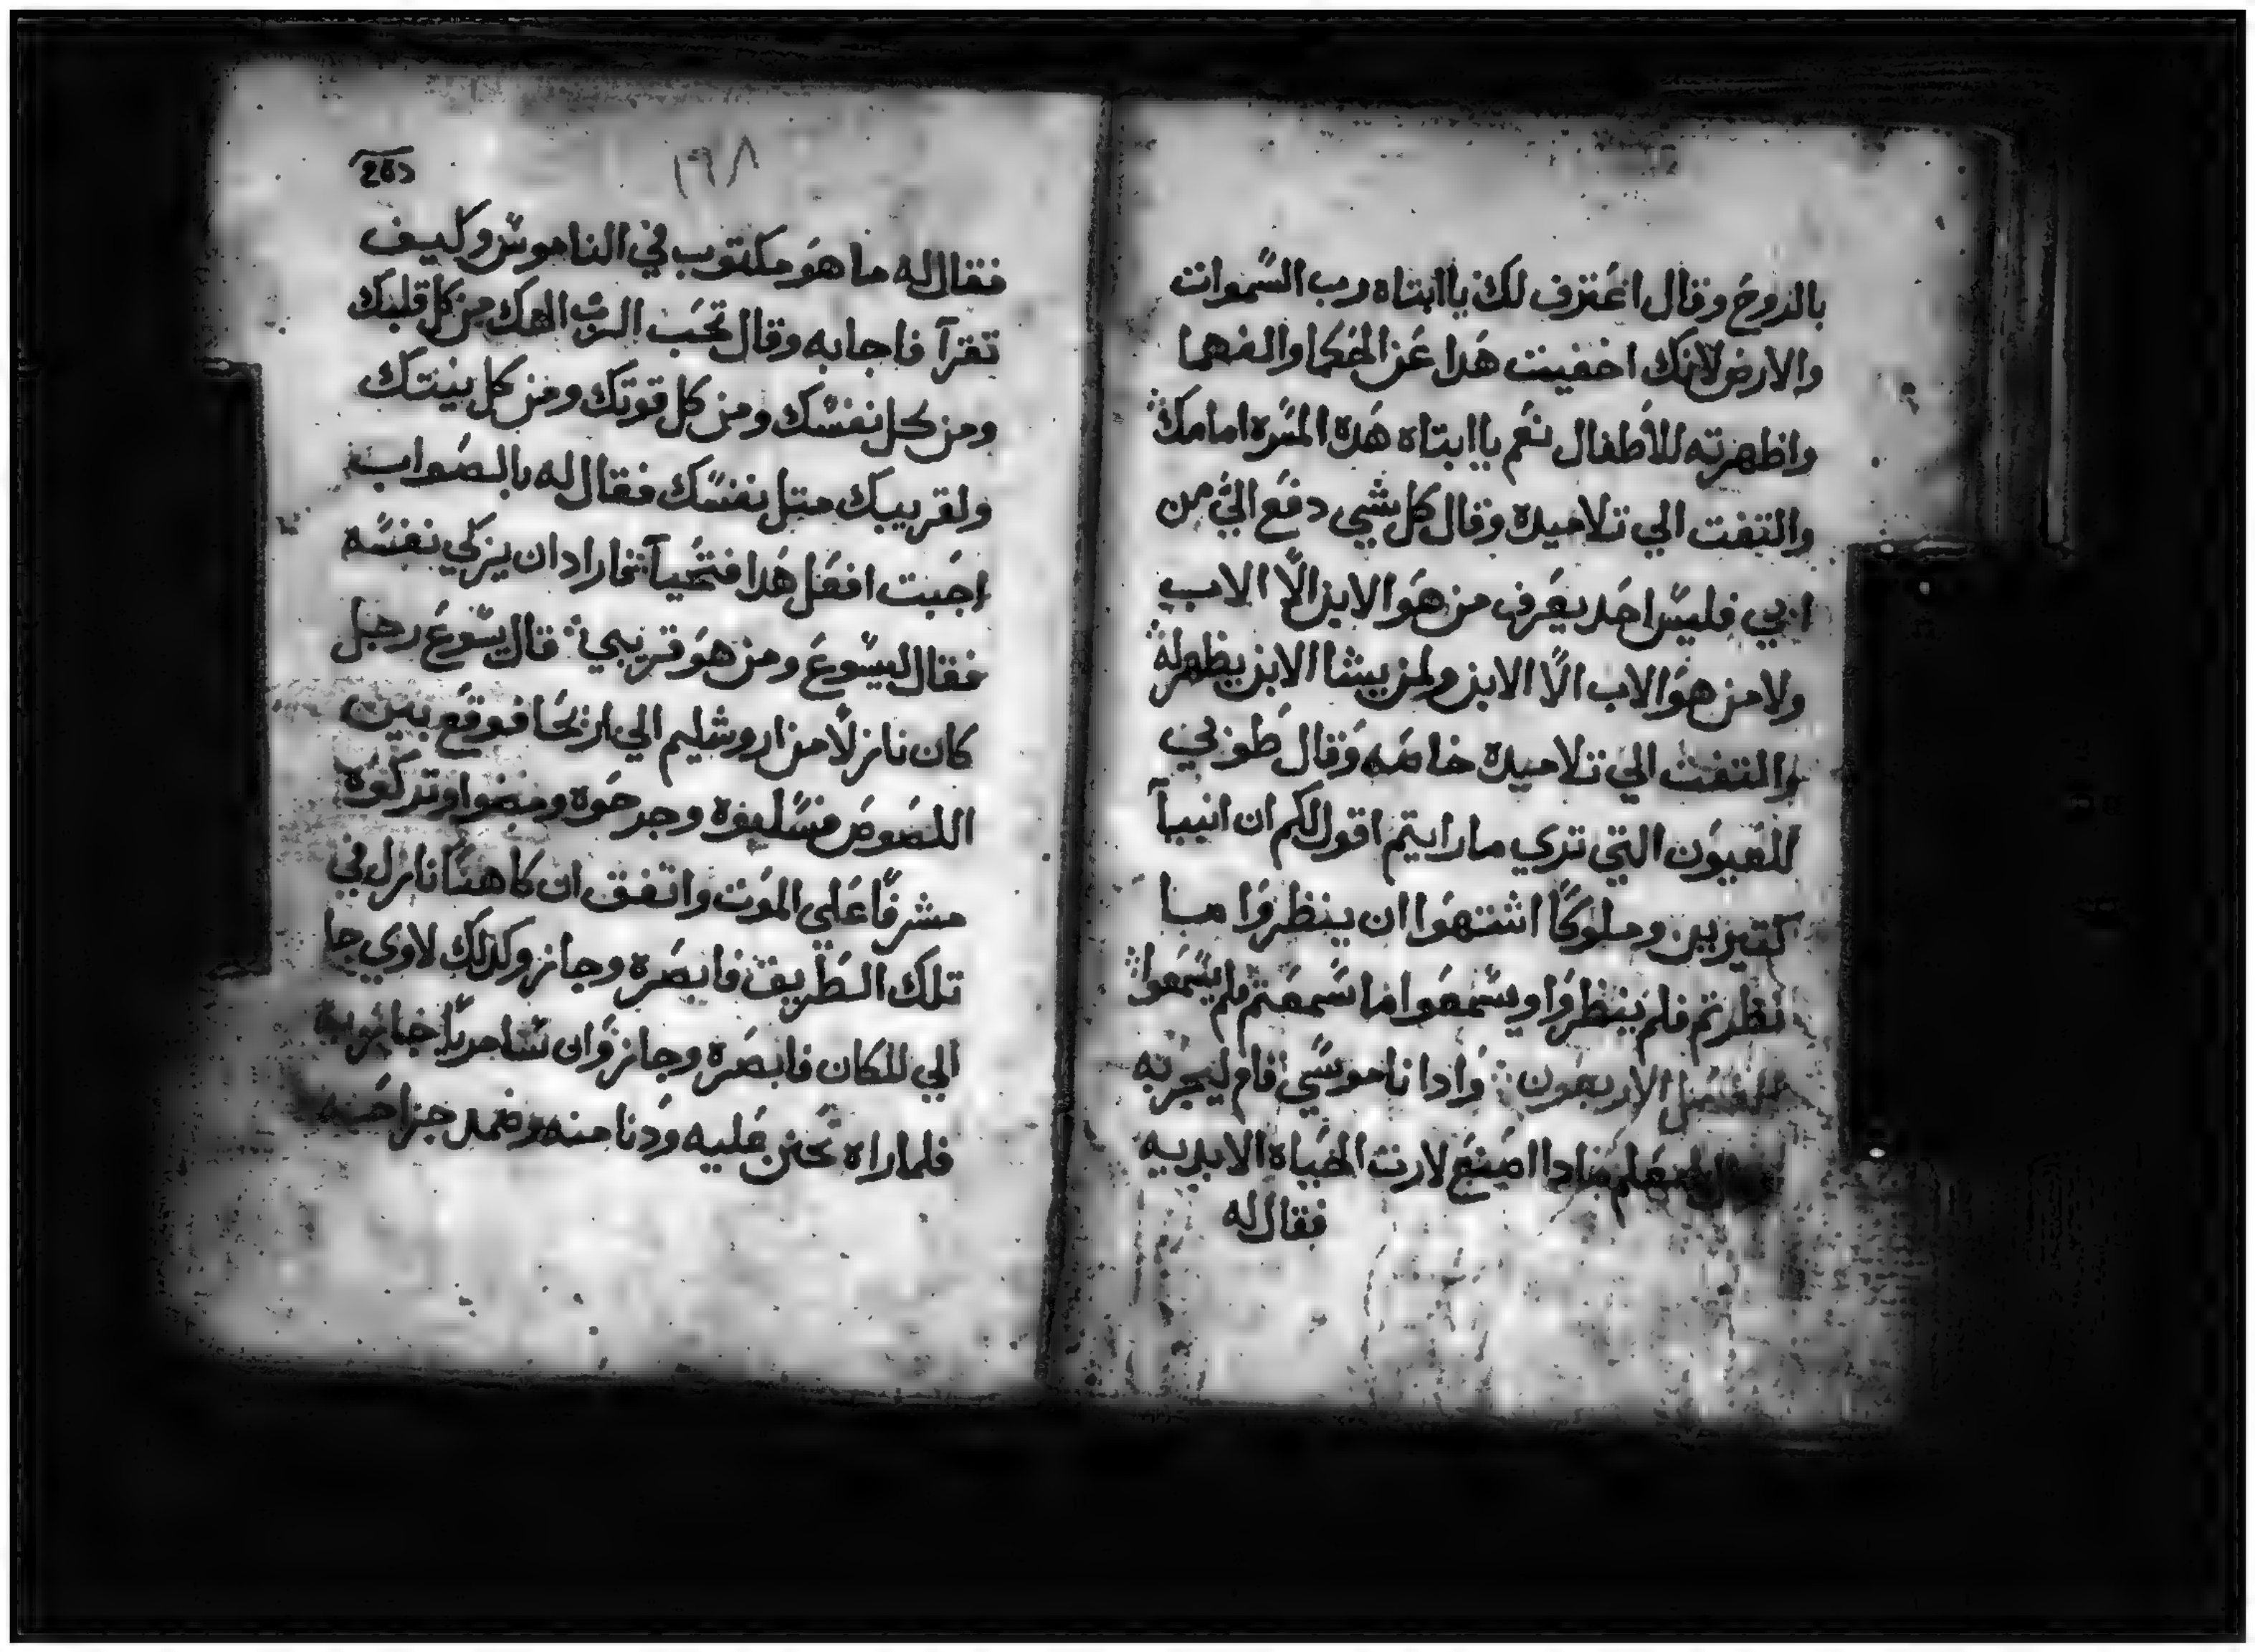 بالروح وقال اعترف لك يا ابتاه رب السموات
والارض لانك اخفيت هدا عن الحكما والفهما
واظهرته للاطفال نعم يا ابتاه هده المسره امامك
والتفت الي تلاميده وقال كل شي دفع الي من
ابي فليس احد يعرف من هو الابن الا الاب
ولا من هو الاب الا الابن ولمن يشا الابن يظهر له
والتفت الي تلاميده خاصه وقال طوبي
للعيون التي تري ما رايتم اقول لكم ان انبيا
كتيرين وملوكا اشتهوا ان ينظروا ما
نظرتم فلم ينظروا ويسمعوا ما سمعتم فلم يسمعوا
الفصل الاربعون وادا ناموسي قام ليجربه
يامعلم مادا اصنع لارت الحياه الابديه
فقال له
١٩٨
فقال له ما هو مكتوب في الناموس وكيف
تقرآ فاجابه وقال تحب الرب الهك من كل قلبك
ومن كل نفسك ومن كل قوتك ومن كل نيتك
ولقريبك متل نفسك فقال له بالصواب
اجبت افعل هدا فتحيآ فاراد ان يزكي نفسه
فقال ليسوع ومن هو قريبي قال يسوع رجل
كان نازلا من اروشليم الي اريحا فوقع بين
اللصوص فسلبوه وجرحوه ومضوا وتركوه
مشرفا علي الموت واتفق ان كاهنا نازل في
تلك الطريق فابصره وجاز وكدلك لاوي جا
الي المكان فابصره وجاز وان سامريا جا
فلما راه تحنن عليه ودنا منه وضمد جراحه